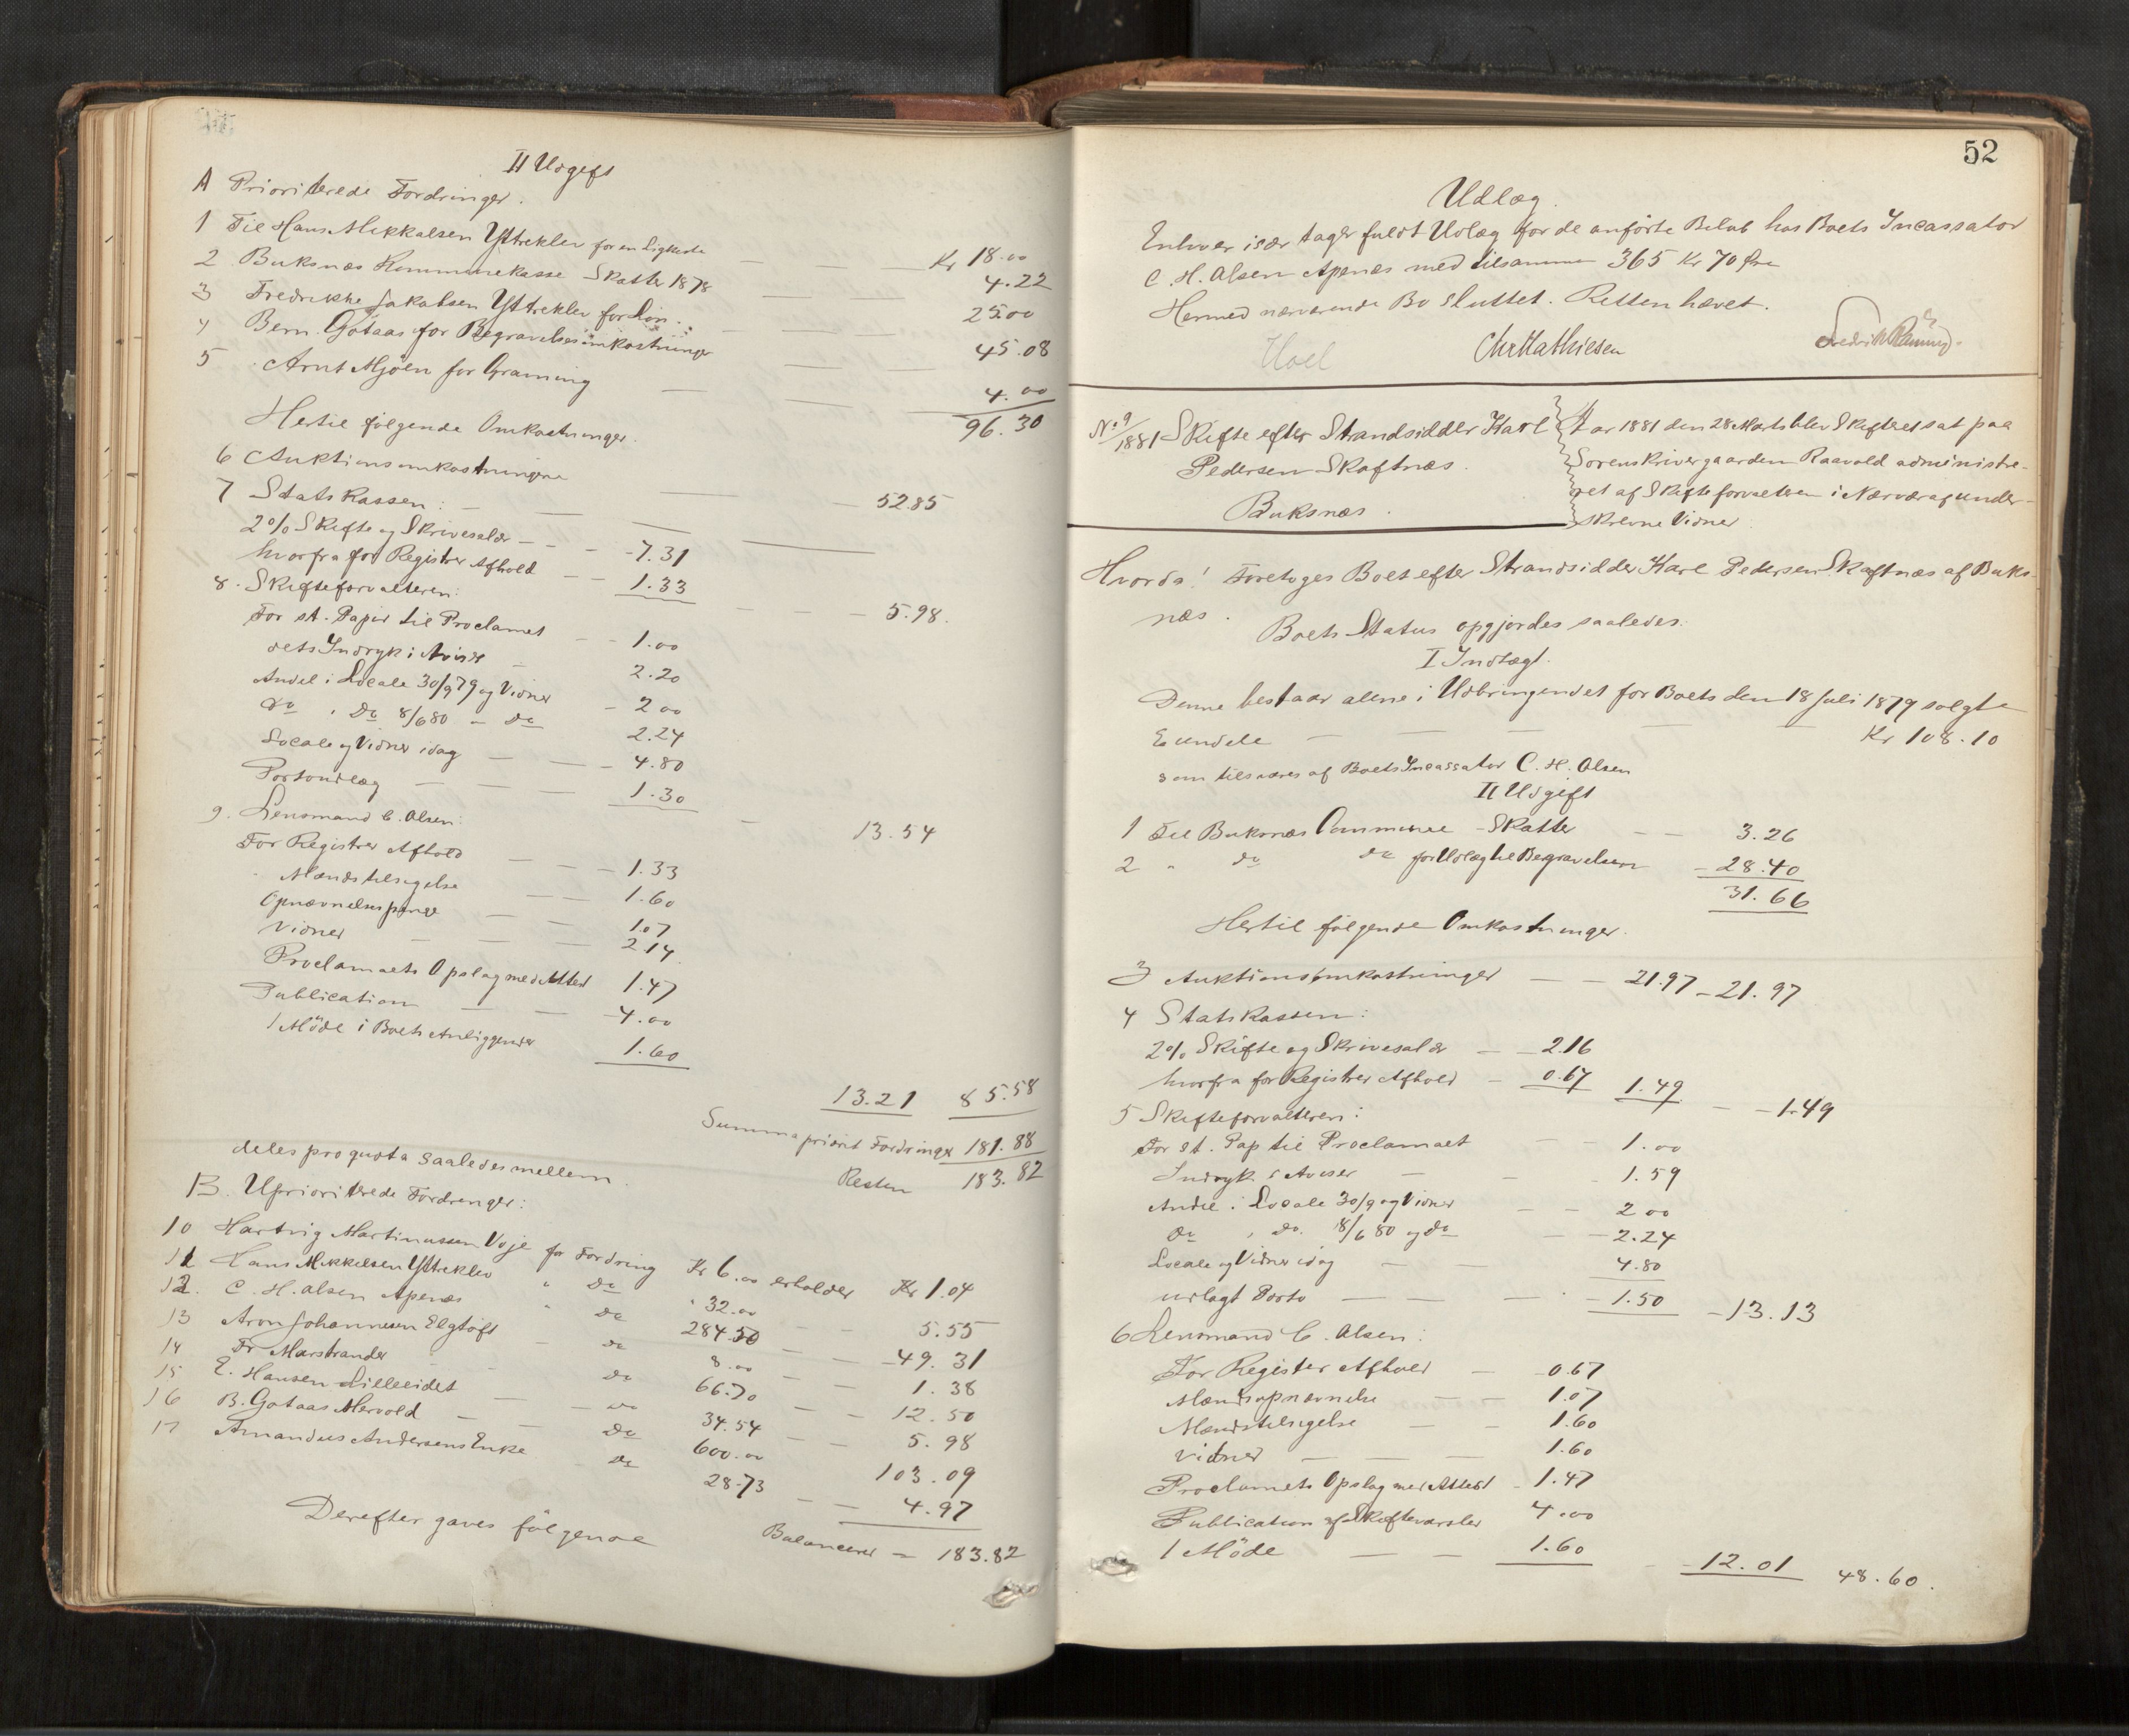 II Udgift
A Prioriterede Fordringer.
1 Til Hans Mikkalsen Yttreklev for en Ligkiste — Kr 18.00
2 Buksnæs Kommunekasse Skatter 1878 — 4.22
3 Fredrikke Jakobsen Yttreklev for Løn. — 25.00
4 Bern. Gotaas for Begravelsesomkostninger — 45.08
5 Arnt Mjöen for Graming — 4.00
96.30
Hertil følgende Omkostninger.
6 Auktionsomkostningerne — 52.85
7 Statskassen:
2% Skifte og Skrivesalær — 7.31
hvorfra for Registrer Afhold — 1.33 — 5.98.
8. Skifteforvalteren:
For st. Papir til Proclamet — 1.00
dets Indryk i Aviser — 2.20
Andel i Locale 30/9 79 og Vidner — 2 00
Do " Do 8/6 80 — Do 2.24
Locale og Vidner idag — 4.80
Portoudlæg — 1.30 — 13.54
9. Lensmand C. Olsen:
For Registrer Afhold — 1.33
" Mændstilsigelse — 1.60
Opnævnelsespenge — 1.07
Vidner — 2.14
Proclamaets Opslag med Attest 1.47
Publication — 4.00
1 Möde i Boets Anliggender 1.60
13.21 85.58
Summa priorit Fordringer 181.88
Resten 183.82
deles pro quota saaledes mellem.
B. Uprioriterede Fordringer:
10 Hartvig Martinussen Voje for Fordring Kr 6.00 erholder Kr 1.04
11 Hans Mikkelsen Yttreklev " Do " 32.00 — 5.55
12. C. H. Olsen Apenæs " Do 284.50 — 49.31
13 Aron Johannesen Elgtoft — Do 8.00 — 1.38
14 Fr Marstrander — Do 66.70 — 12.50
15 E. Hansen Lilleeidet — Do 34.54 — 5.98
16 B. Gotaas Mervold — Do 600.00 103.09
17 Amandus Andersens Enke — Do 28.73 — 4.97
Balancerer — 183.82
Derefter gaves følgende
52
Udlæg.
Enhver især tager fuldt Udlæg for de anførte Beløb hos Boets Incassator
C. H. Olsen Apenæs med tilsammen 365 Kr 70 Øre
Hermed nærværende Bo sluttet. Retten hævet.
Hoel Chr Mathiesen Fredrik Rønning
No 9/1881 Skifte efter Strandsidder Karl
Pedersen Skaftnæs.
Buksnæs.
Aar 1881 den 28 Marts blev Skifteret sat paa
Sorenskrivergaarden Raavold administre-
ret af Skifteforvalteren i Nærvær af under-
skrevne Vidner
Hvorda! Foretoges Boet efter Strandsidder Karl Pedersen Skaftnæs af Buks-
næs.
Boets Status opgjordes saaledes:
I Indtægt.
Denne bestaar alene i Udbringendet for Boets den 18 Juli 1879 solgte
Eiendele — Kr 108.10
som tilsvares af Boets Incassator C. H. Olsen
II Udgift
1 Til Buksnæs Commune — Skatter — 3.26
2 " do do for Udlæg til Begravelsen — 28.40
31.66
Hertil følgende Omkostninger.
3 Auktionsomkostninger — 21.97 — 21.97
4 Statskassen:
2% Skifte og Skrivesalær — 2.16
hvorfra for Registrer Afhold — 0.67 1.49 — 1.49
5 Skifteforvalteren:
For st. Pap til Proclamaet — 1.00
Indryk i Aviser — 1.59
Andel i Locale 30/9 og Vidner — 2 00
Do " do. 8/6 80 og do — 2.24
Locale og Vidner idag — 4.80
udlagt Porto — 1.50 — 13.13
6 Lensmand C. Olsen:
For Register Afhold — 0.67
Mændsopnævnelse — 1.07
Mændstilsigelse — 1.60
Vidner — 1.60
Proclamets Opslag med Attest — 1.47
Publication af Skiftevarsler 4.00
1 Möde — 1.60 — 12.01 48.60.